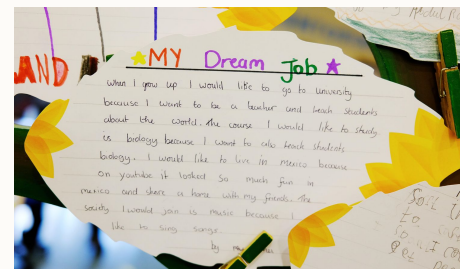 AND
MY Dream Job
When I grow up I would like to go to university
because I want to be a teacher and teach students
about the world. The course I would like to study
is biology because I want to also teach students
biology. I would like to live in Mexico because
on youtube it looked so much fun in
mexico and share a home with my friends. The
society I would join is music because I
like to sing songs.
by